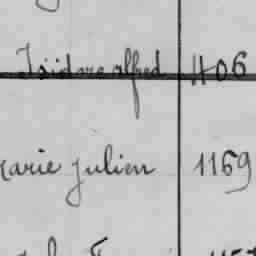 Isidore alfred 1106
Marie Julien 1169